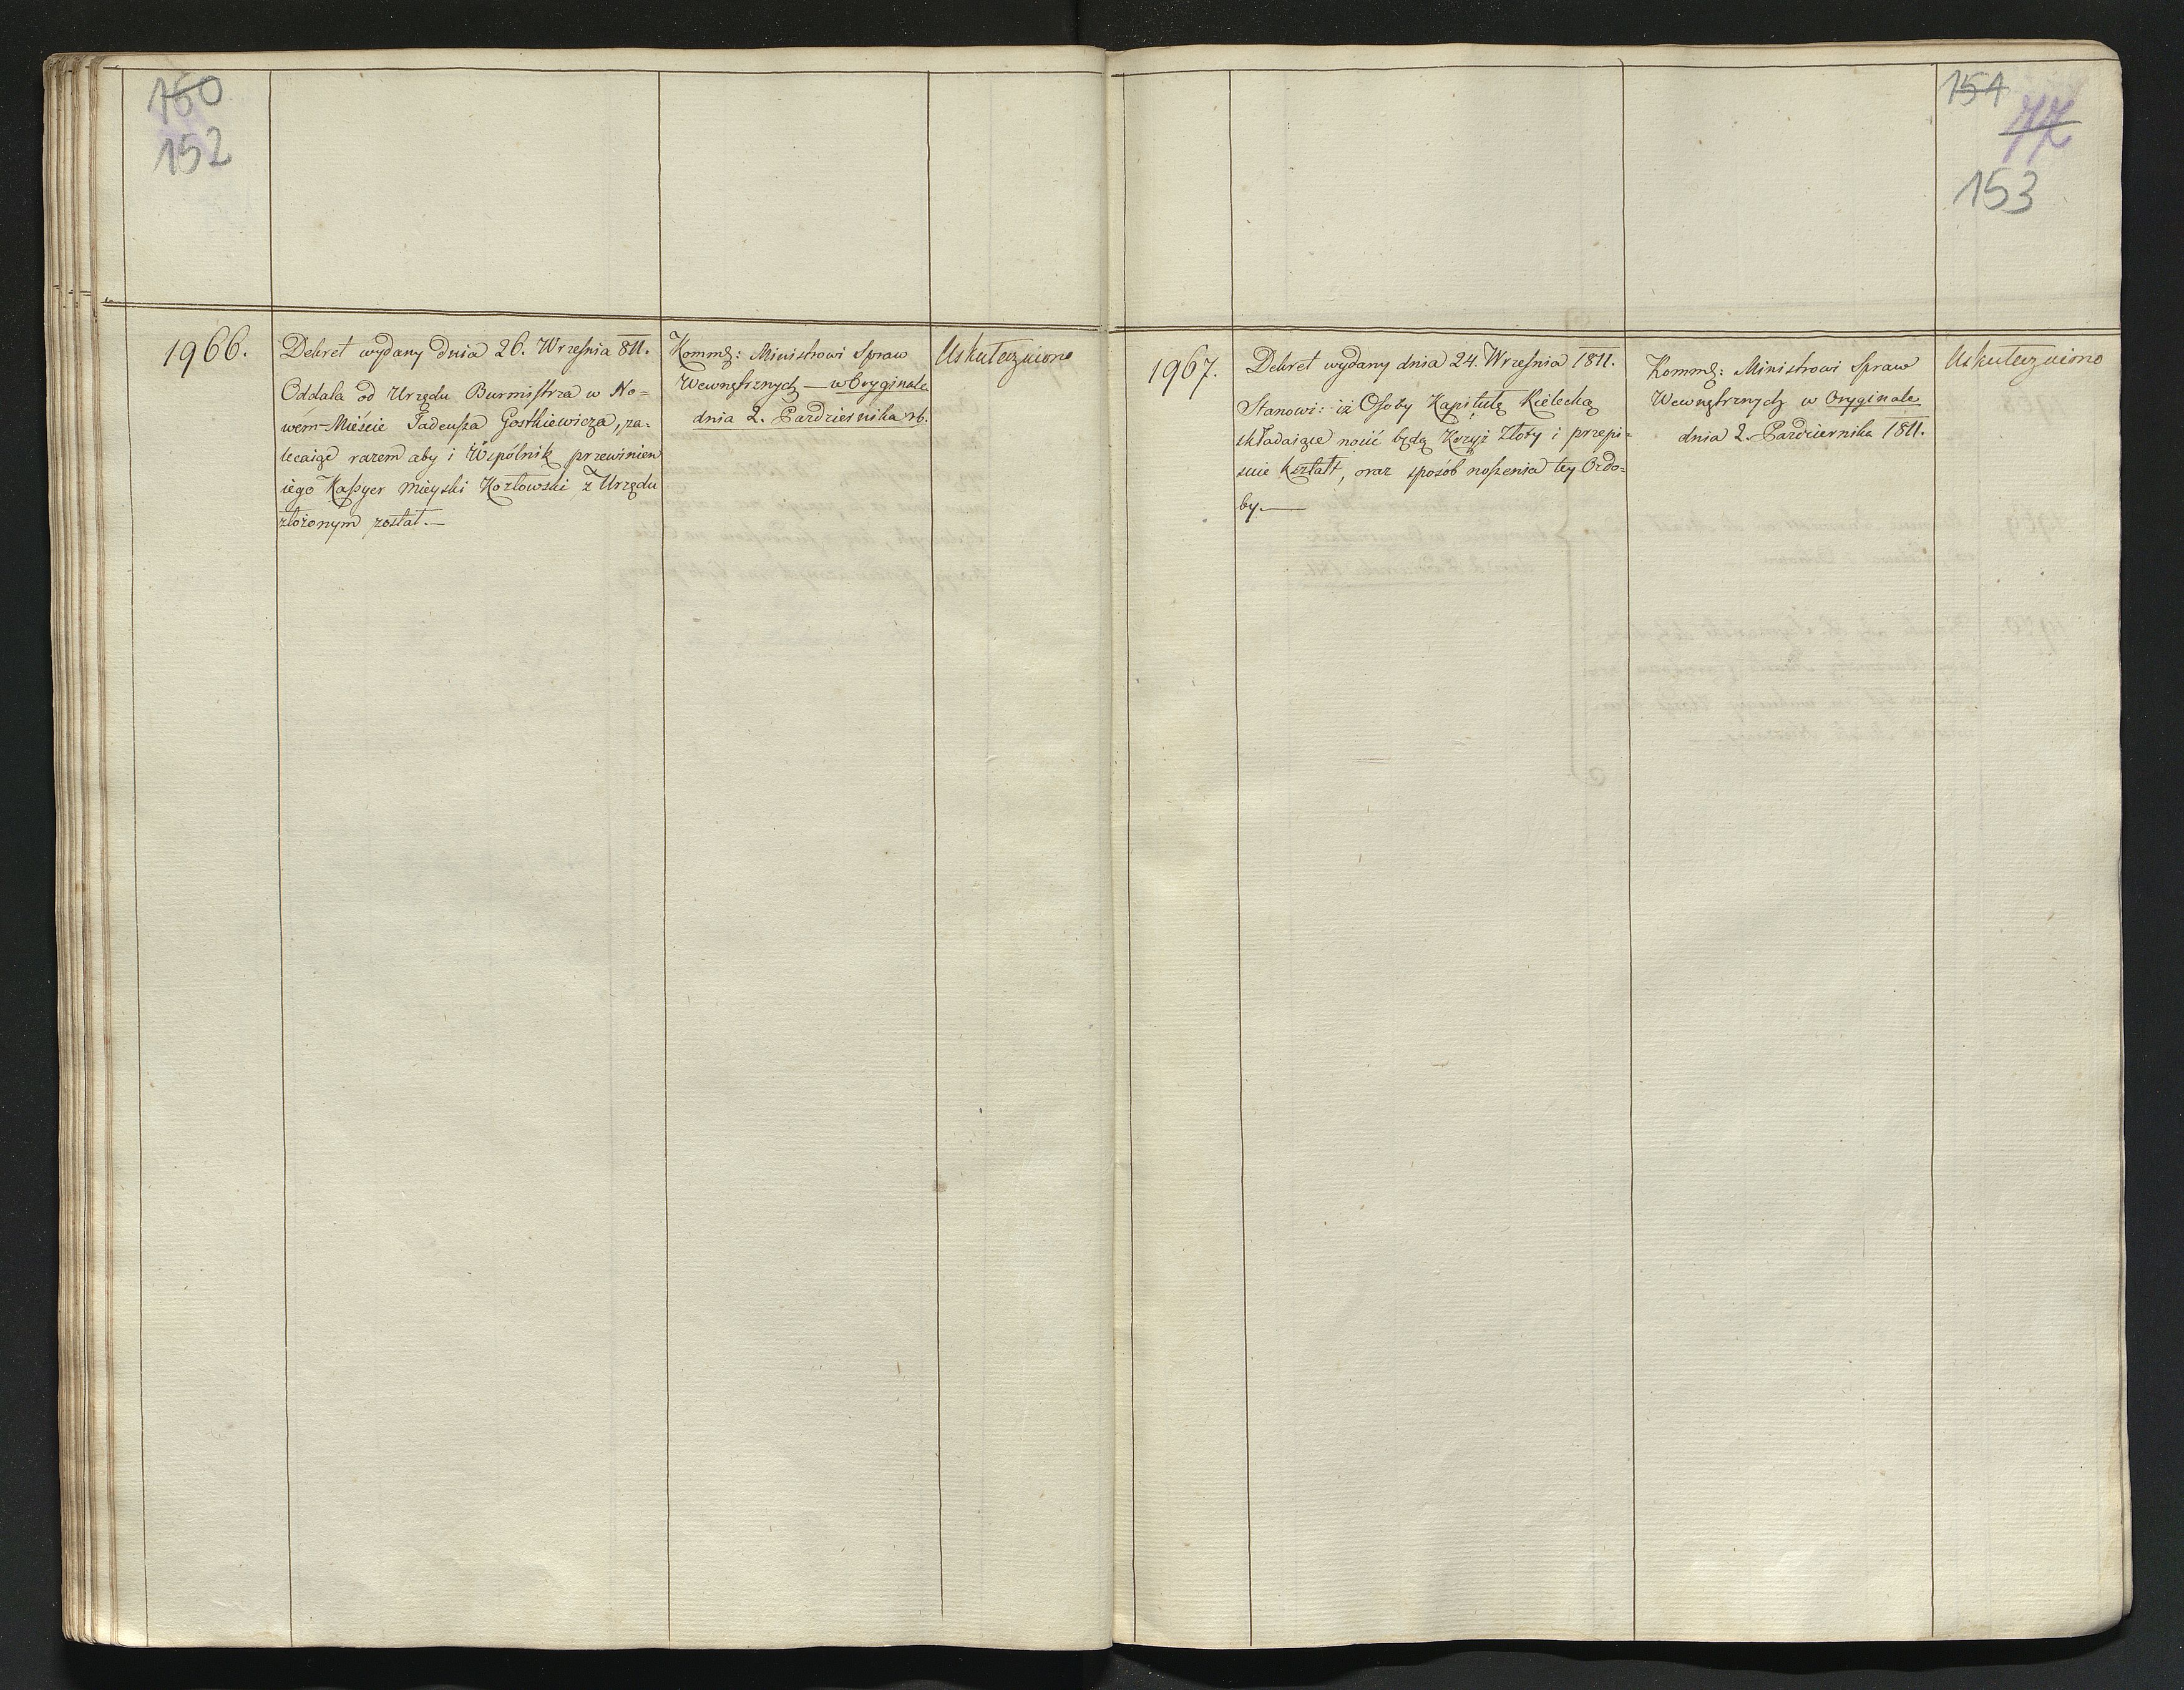 150
152
1966.
Dekret wydany dnia 26. Wrzesnia 811.
Oddala od Urzędu Burmistrza w No-
wém-Mieście Tadeusza Gostkiewicza, za-
lecaiąc razem aby i Wspólnik przewinien
iego Kassyer Mieyski Kozłowski z Urzędu
złożonym został.—
Ministrowi Spraw
Wewnętrznych — w Oryginale
dnia 2. Pazdziernika rb.
Uskuteczniono
151
77
153
1967.
Dekret wydany dnia 24. Wrzesnia 1811.
Stanowi: iż Osoby Kapitułę Kielecką
składaiące nosić będą Krzyż Złoty i przepi=
suie kształt, oraz sposób noszenia tey Ozdo=
by.—
Ministrowi Spraw
Wewnętrznych w Oryginale
dnia 2. Pazdziernika 1811.
Uskuteczniono